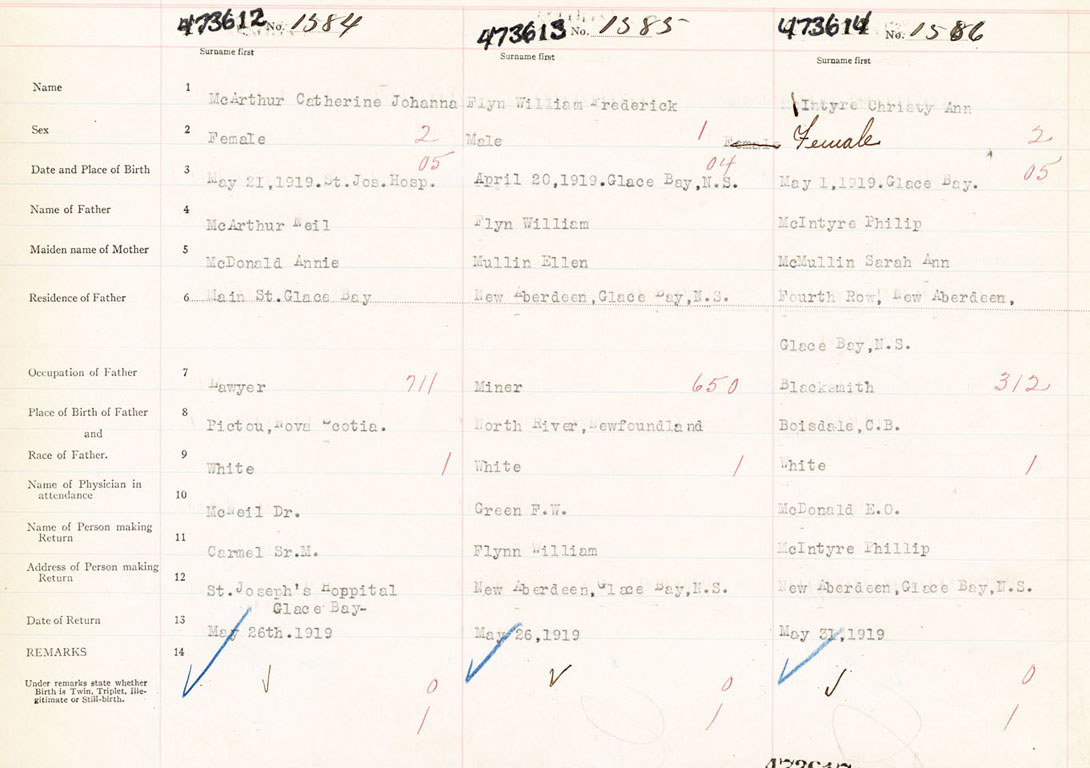 473612 No. 1584 473613 No. 1585 473614 No. 1586
Surname first Surname first Surname first
Name 1 McArthur Catherine Johanna Flyn William Frederick McIntyre Christy Ann
Sex 2 Female 2 Male 1 Female Female 2
05 04 05
Date and Place of Birth 3 May 21,1919.St.Jos.Hosp. April 20,1919.Glace Bay,N.S. May 1,1919.Glace Bay.
Name of Father 4 McArthur Neil Flyn William McIntyre Philip
Maiden name of Mother 5 McDonald Annie Mullin Ellen McMullin Sarah Ann
Residence of Father 6 Main St.Glace Bay New Aberdeen,Glace Bay,N.S. Fourth Row, New Aberdeen,
Glace Bay,N.S.
Occupation of Father 7 Lawyer 711 Miner 650 Blacksmith 312
Place of Birth of Father 8 Pictou,Nova Scotia. North River,Newfoundland Boisdale,C.B.
and
Race of Father. 9 White 1 White 1 White 1
Name of Physician in
attendance 10 McNeil Dr. Green F.W. McDonald E.O.
Name of Person making
Return 11 Carmel Sr.M. Flynn William McIntyre Phillip
Address of Person making
Return 12 St.Joseph's Hoppital New Aberdeen,Glace Bay,N.S. New Aberdeen,Glace Bay,N.S.
Glace Bay-
Date of Return 13 May 26th.1919 May 26,1919 May 31,1919
REMARKS 14
Under remarks state whether
Birth is Twin, Triplet, Ille-
gitimate or Still-birth.
0 0 0
1 1 1